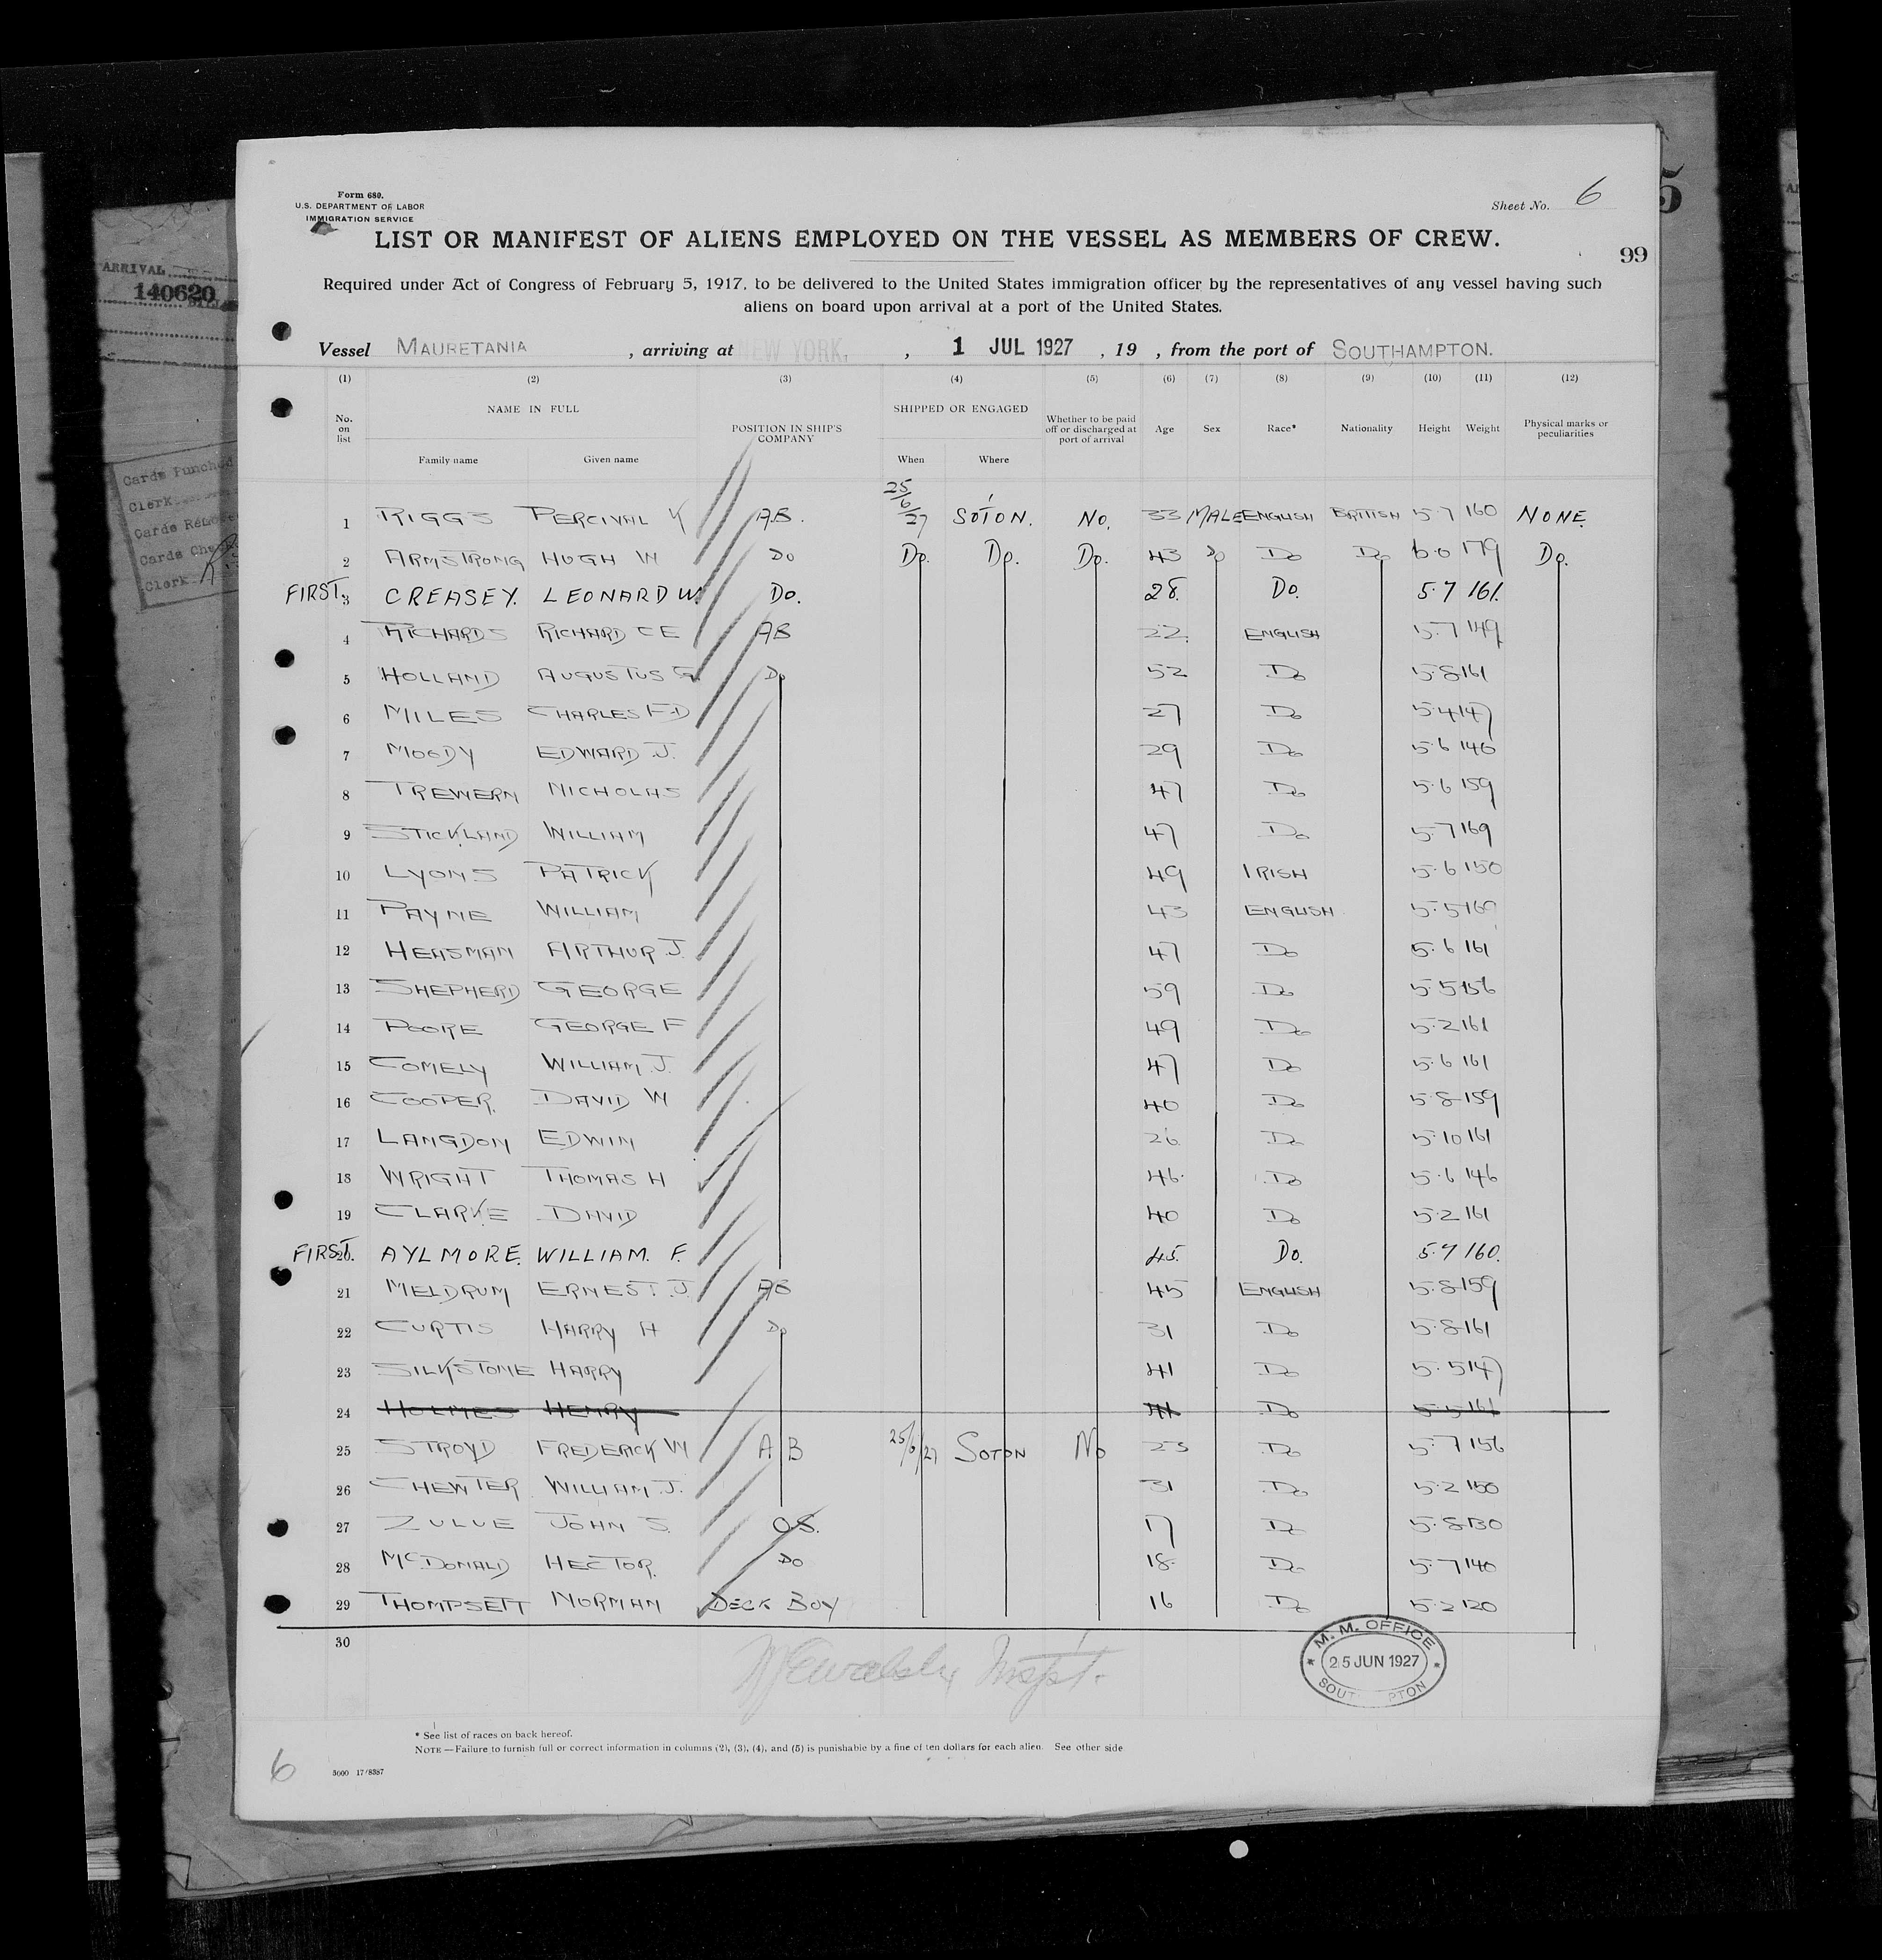 Form 680.
U.S. DEPARTMENT OF LABOR
IMMIGRATION SERVICE
Sheet No. 6
LIST OR MANIFEST OF ALIENS EMPLOYED ON THE VESSEL AS MEMBERS OF CREW.
99
Required under Act of Congress of February 5, 1917, to be delivered to the United States immigration officer by the representatives of any vessel having such
aliens on board upon arrival at a port of the United States.
ARRIVAL
140620
Vessel MAURETANIA , arriving at NEW YORK, , 1 JUL 1927 , 19 , from the port of SOUTHAMPTON.
(1) (2) (3) (4) (5) (6) (7) (8) (9) (10) (11) (12)
No. on list NAME IN FULL POSITION IN SHIP'S COMPANY SHIPPED OR ENGAGED Whether to be paid off or discharged at port of arrival Age Sex Race* Nationality Height Weight Physical marks or peculiarities
Family name Given name When Where
Cards Punched
Clerk
Cards Remove
Cards Check
Clerk
1 RIGGS PERCIVAL K A.B. 25/6/27 SOTON. No. 33 MALE ENGLISH BRITISH 5.7 160 NONE.
2 ARMSTRONG HUGH W Do Do. Do. Do. 43 Do Do Do 6.0 179 Do.
FIRST. 3 CREASEY. LEONARD W. Do. 28. Do. 5.7 161.
4 RICHARDS RICHARD C E AB 22. ENGLISH 5.7 149
5 HOLLAND AUGUSTUS G. Do 52 Do 5.8 161
6 MILES CHARLES F D 27 Do 5.4 147
7 MOODY EDWARD J. 29 Do 5.6 146
8 TREWERN NICHOLAS 47 Do 5.6 159
9 STICKLAND WILLIAM 47 Do 5.7 169
10 LYONS PATRICK 49 IRISH 5.6 150
11 PAYNE WILLIAM 43 ENGLISH 5.5 160
12 HEASMAN ARTHUR J. 47 Do 5.6 161
13 SHEPHERD GEORGE 59 Do 5.5 156
14 POORE GEORGE F 49 Do 5.2 161
15 COMELY WILLIAM J. 47 Do 5.6 161
16 COOPER. DAVID W 40 Do 5.8 159
17 LANGDON EDWIN 26. Do 5.10 161
18 WRIGHT THOMAS H 46. Do 5.6 146
19 CLARKE DAVID 40 Do 5.2 161
FIRST. 20. AYLMORE. WILLIAM. F. 45. Do. 5.7 160.
21 MELDRUM ERNEST. J. AB 45 ENGLISH 5.8 159
22 CURTIS HARRY H Do 31 Do 5.8 161
23 SILKSTONE HARRY 41 Do 5.5 147
24 HOLMES HENRY 41 Do 5.5 161
25 STROYD FREDERICK W A B 25/6/27 SOTON No 23 Do 5.7 156
26 CHEWTER WILLIAM J. 31 Do 5.2 150
27 ZULUE JOHN S. O.S. 17 Do 5.8 130
28 McDONALD HECTOR. Do 18. Do 5.7 140
29 THOMPSETT NORMAN DECK BOY 16 Do 5.2 120
30
M. M. OFFICE
25 JUN 1927
* See list of races on back hereof.
NOTE—Failure to furnish full or correct information in columns (2), (3), (4), and (5) is punishable by a fine of ten dollars for each alien. See other side
6
5000 17/8387